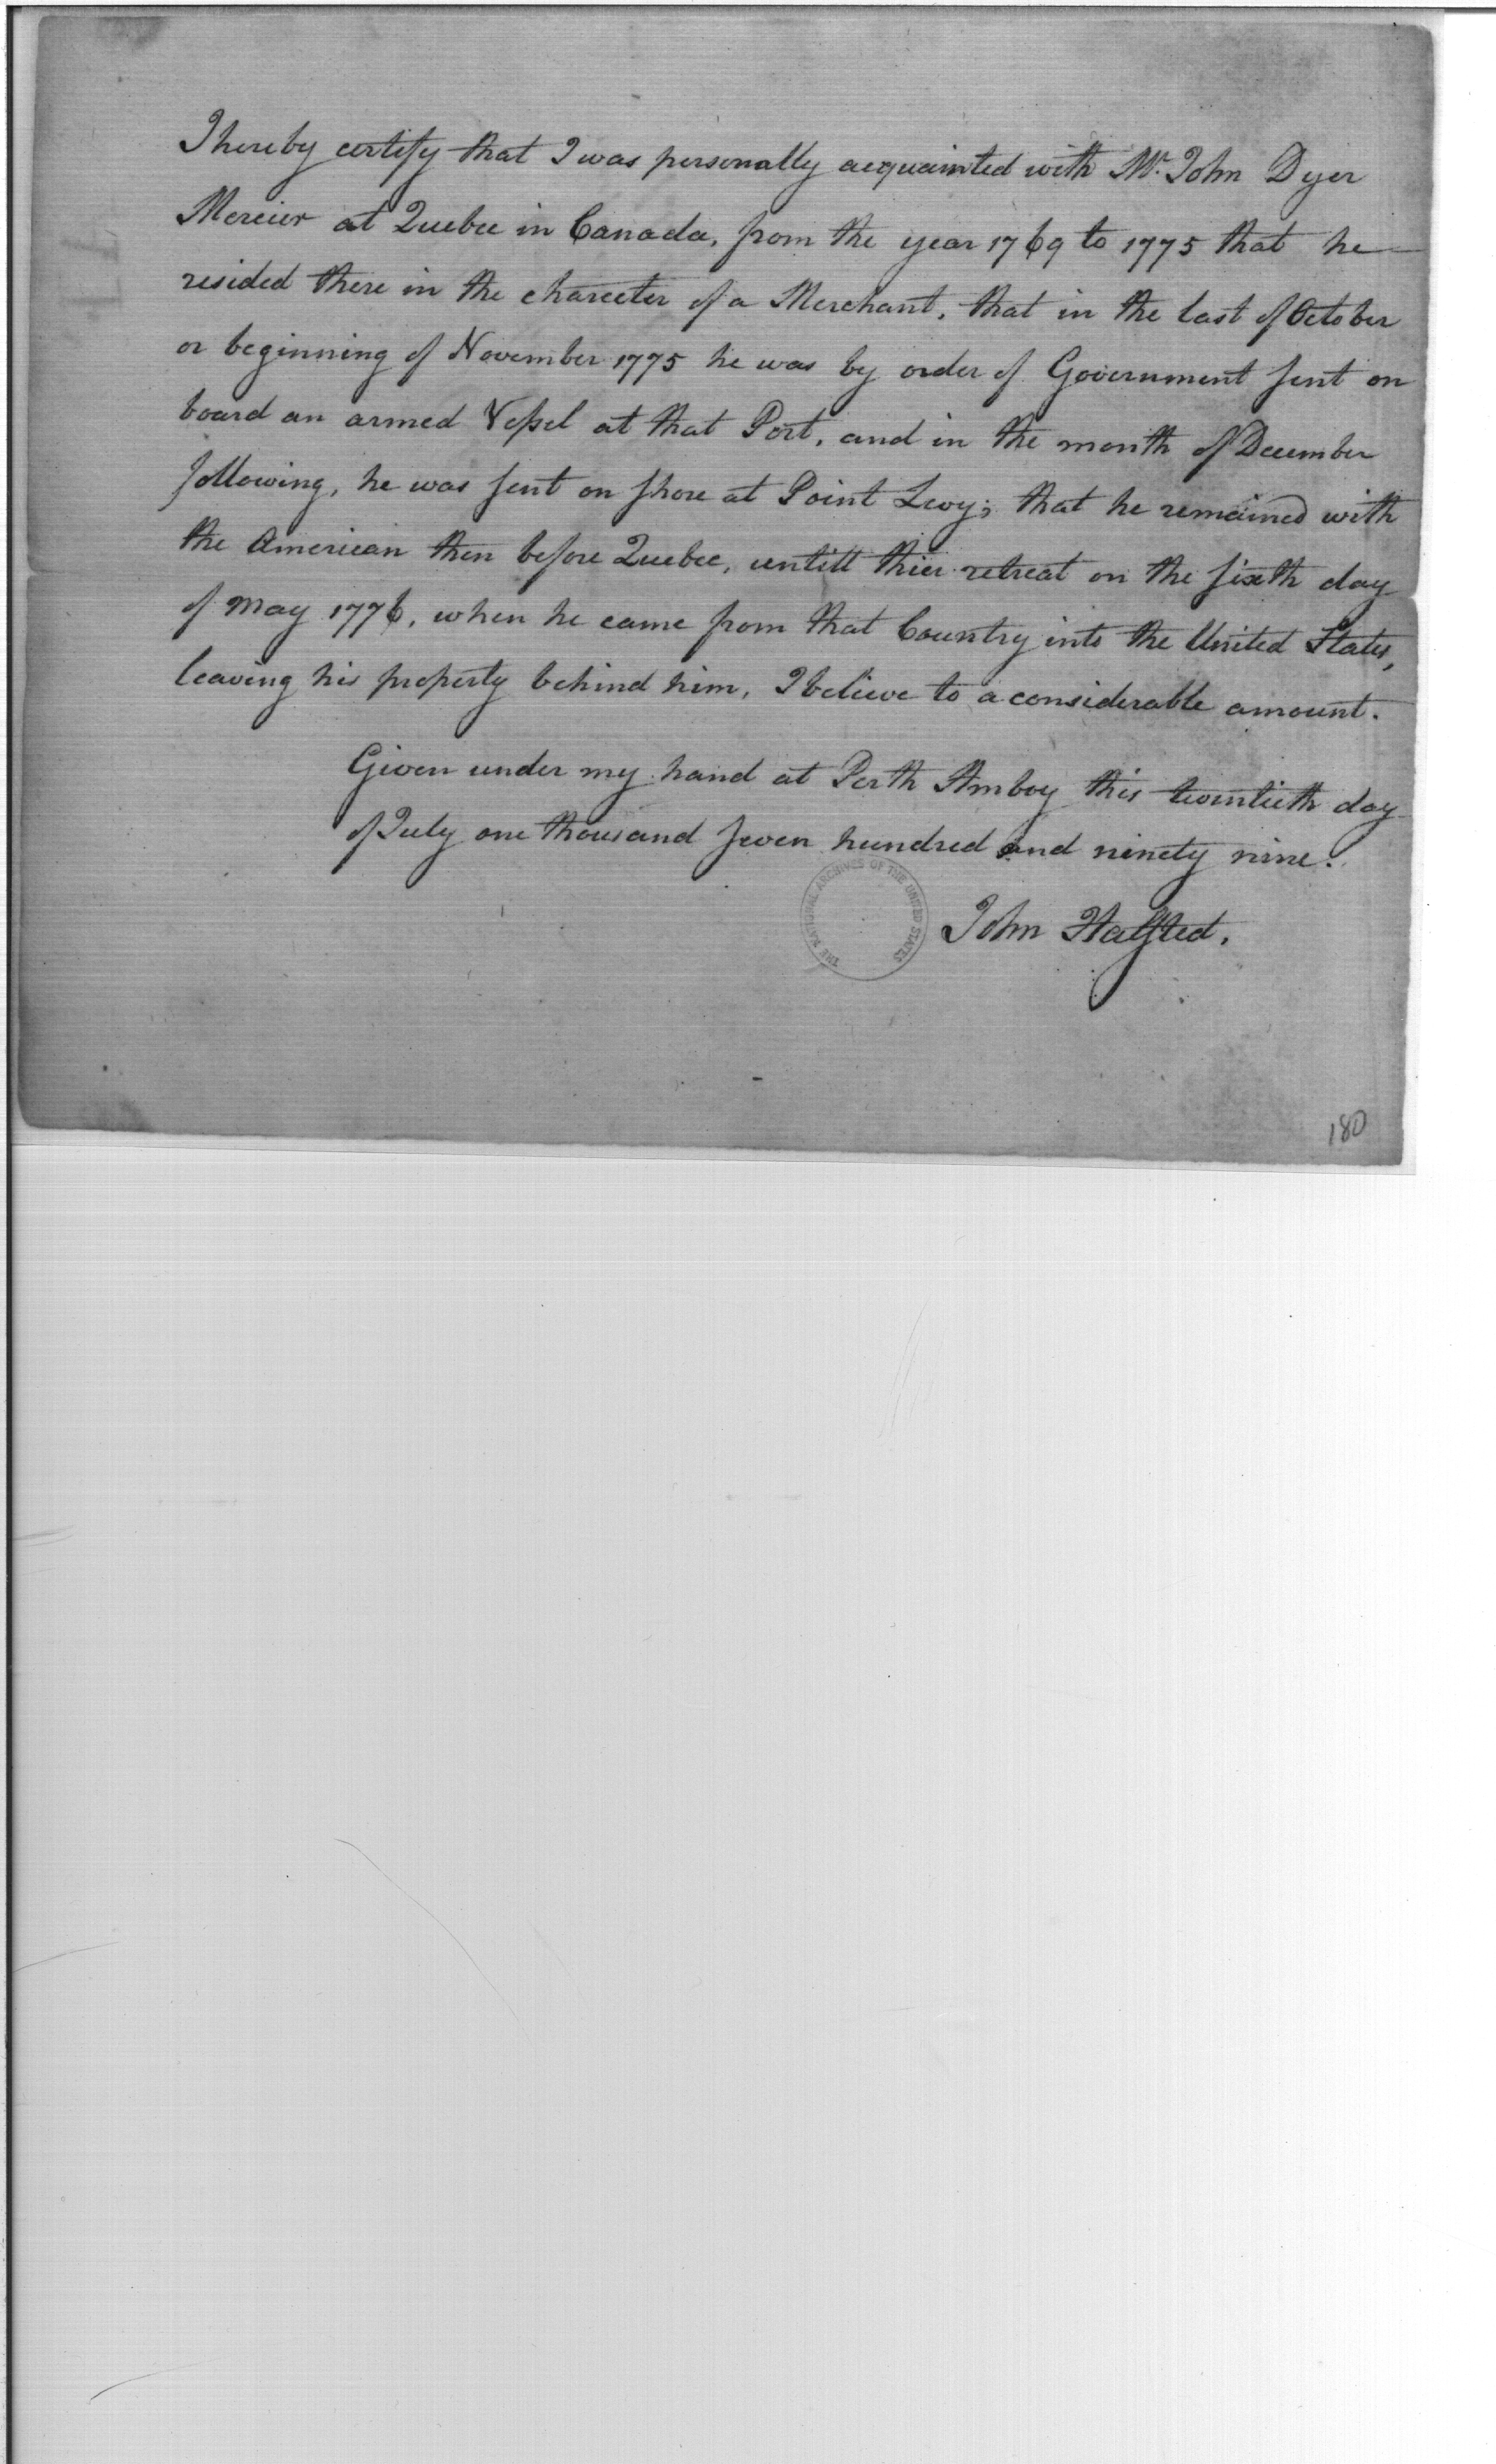 I hereby certify that I was personally acquainted with Mr. John Dyer
Mercier at Quebec in Canada, from the year 1769 to 1775 that he
resided there in the charecter of a Merchant, that in the last of October
or beginning of November 1775 he was by order of Government sent on
board an armed Vessel at that Port, and in the month of December
following, he was sent on shore at Point Levy; that he remained with
the American then before Quebec, untill thier retreat on the sixth day
of May 1776, when he came from that Country into the United States,
leaving his property behind him, I believe to a considerable amount.
Given under my hand at Perth Amboy this twentieth day
of July one thousand seven hundred and ninety nine.
THE NATIONAL ARCHIVES OF THE UNITED STATES
John Halsted.
180